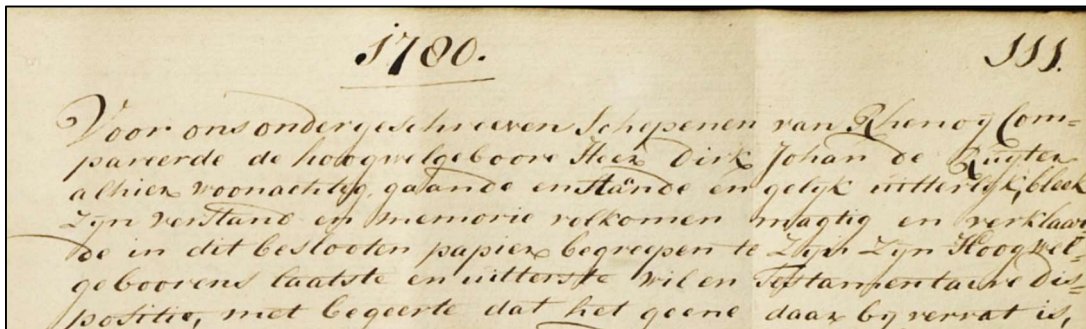 1780. 111.
Voor ons ondergeschreeven Schepenen van Rhenoy Com=
pareerde de hoogwelgeboore Heer Dirk Johan de Ruyter
alhier woonachtig, gaande en staande en gelyk uitterlyk, bleek
Zyn verstand en memorie volkomen magtig en verklaar
de in dit beslooten papier begreepen te Zyn Zyn Hoogwel=
geboorens laatste en uitterste wil en Testamentaire Dis=
positie, met begeerte dat het geene daar by vervat is,